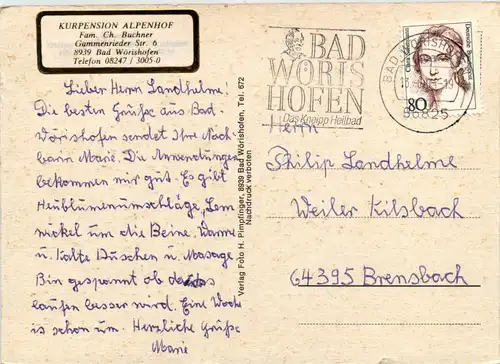 KURPENSION ALPENHOF
Fam. Ch. Buchner
Gammenrieder Str. 6
8939 Bad Wörishofen
Telefon 08247 / 3005-0
Lieber Herrn Landhelme!
Die besten Grüße aus Bad-
Wörishofen sendet Ihre Nach-
barin Marie. Die Anwendungen
bekommen mir gut. Es gibt
Heublumenumschläge, Lem
wickel um die Beine. Warme
u. Kalte Duschen u. Masage.
Bin gespannt ob das
laufen besser wird. Eine Woche
is schon um. Herzliche Grüße
Marie
Verlag Foto H. Pimpfinger, 8939 Bad Wörishofen, Tel. 672
Nachdruck verboten
BAD
WÖRIS
HOFEN
Das Kneipp Heilbad
BAD WÖRISHOFEN
86825
Deutsche Bundespost
80
Herrn
Philip Landhelme
Weiler Kilsbach
64395 Brensbach